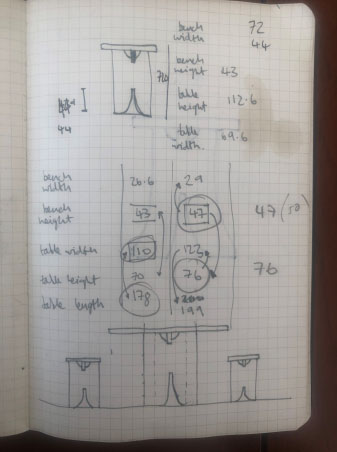 bench width 72
44
bench height 43
table height 112.6
table width 69.6
44
bench width 26.6 29
bench height 43 47 47 (50)
table width 110 123
table height 70 76 76
table length 178 200
199